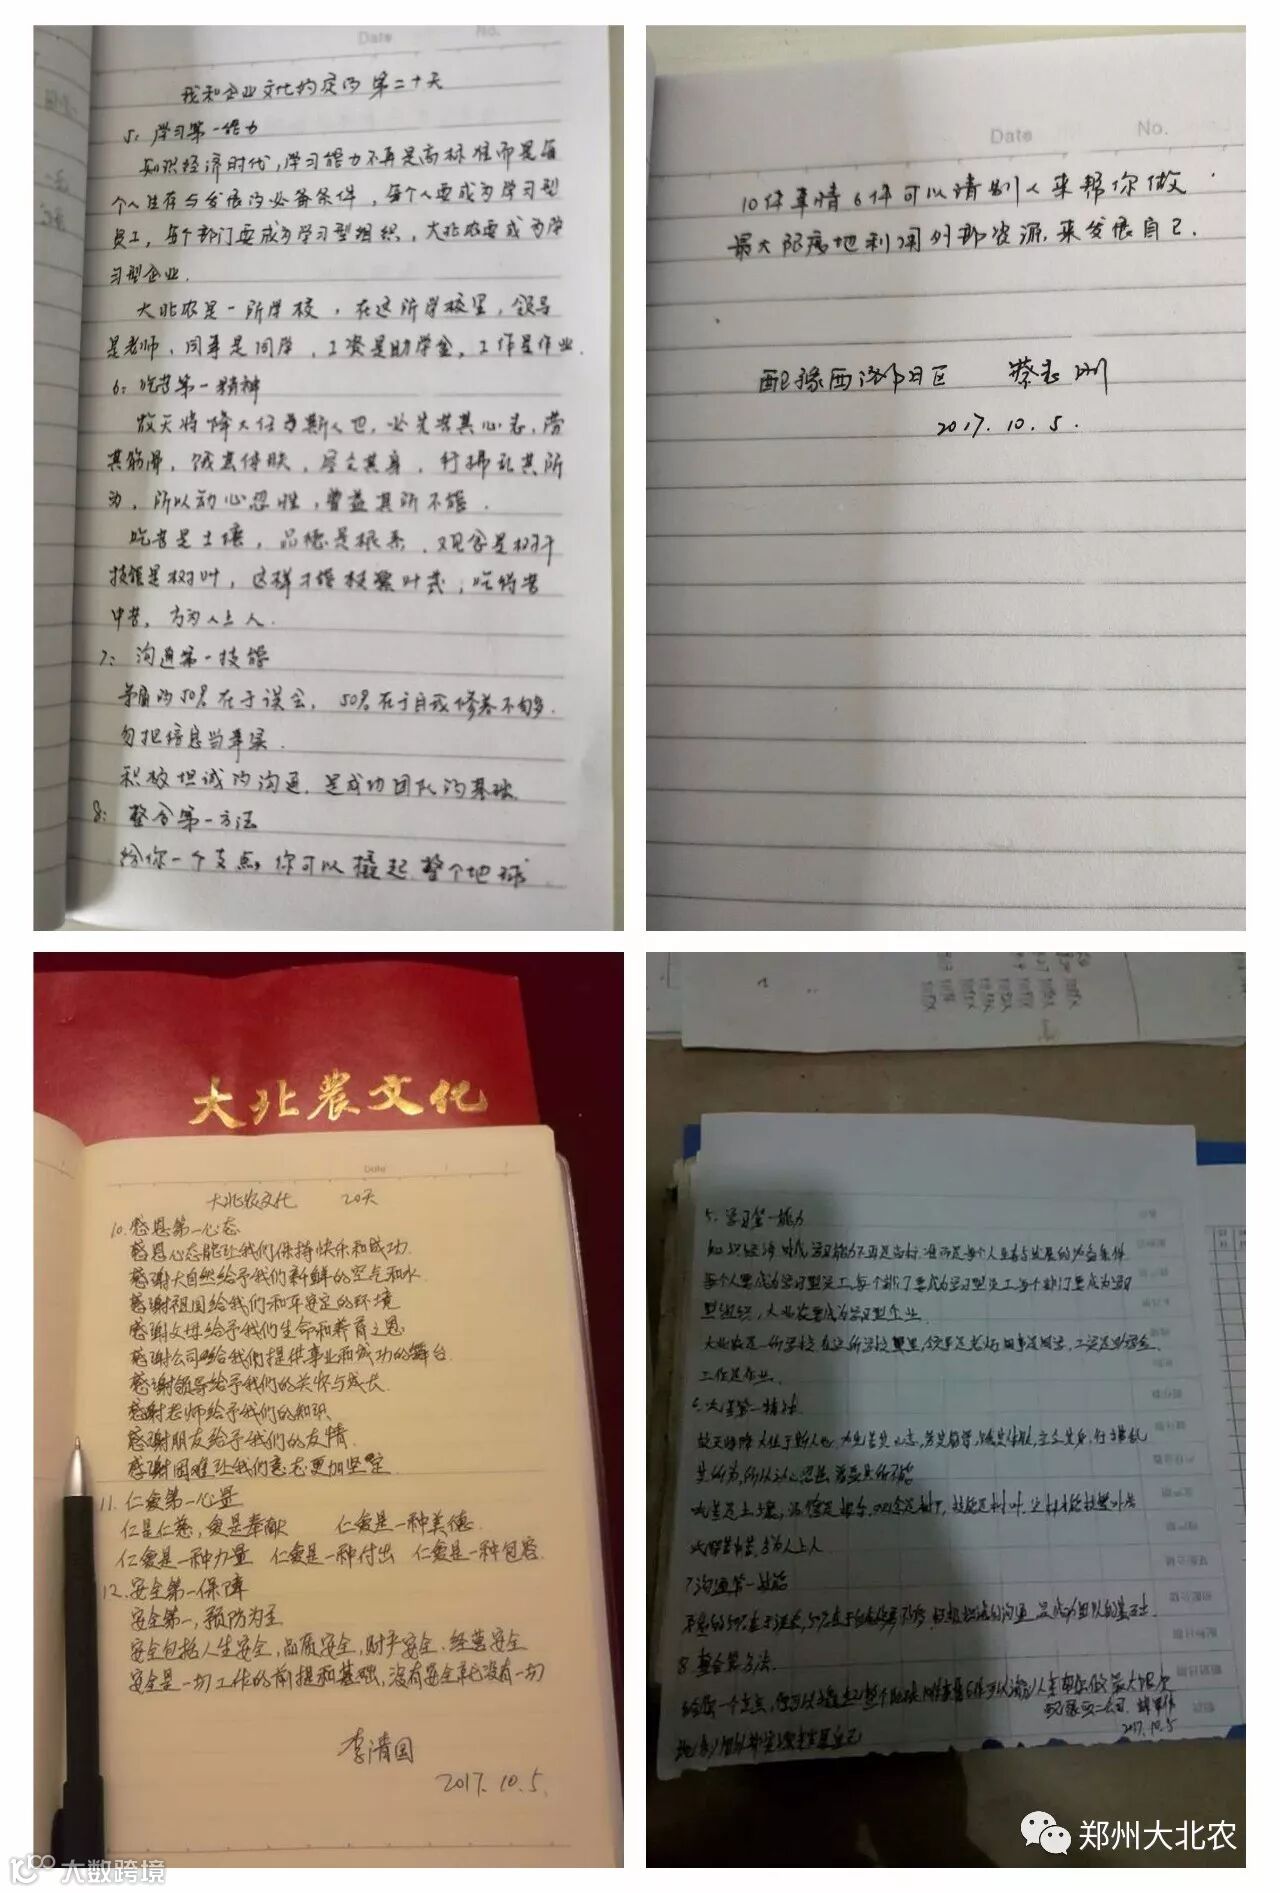 Date No.
我和企业文化约定的第二十天
5: 学习第一能力
知识经济时代,学习能力不再是高标准而是每
个人生存与发展的必备条件,每个人要成为学习型
员工,每个部门要成为学习型组织,大北农要成为学
习型企业.
大北农是一所学校,在这所学校里,领导
是老师,同事是同学,工资是助学金,工作是作业.
6: 吃苦第一精神
故天将降大任于斯人也,必先苦其心志,劳
其筋骨,饿其体肤,空乏其身,行拂乱其所
为,所以动心忍性,曾益其所不能.
吃苦是土壤,品德是根系,观念是树干
技能是树叶,这样才能枝繁叶茂,吃得苦
中苦,方为人上人.
7: 沟通第一技能
矛盾的50%在于误会,50%在于自我修养不够.
勿把信息当事实.
积极坦诚的沟通,是成功团队的基础.
8: 整合第一方法
给你一个支点,你可以撬起整个地球
Date No.
10件事情6件可以请别人来帮你做.
最大限度地利用外部资源,来发展自己.
配豫西洛阳区 蔡志刚
2017.10.5.
大北农文化
Date
大北农文化 20天
10.感恩第一心态
感恩心态能让我们保持快乐和成功.
感谢大自然给予我们新鲜的空气和水
感谢祖国给我们和平安定的环境
感谢父母给予我们生命和养育之恩
感谢公司给我们提供事业和成功的舞台.
感谢领导给予我们的关怀与成长.
感谢老师给予我们的知识
感谢朋友给予我们的友情.
感谢困难让我们意志更加坚定.
11.仁爱第一心量
仁是仁慈,爱是奉献 仁爱是一种美德.
仁爱是一种力量 仁爱是一种付出 仁爱是一种包容.
12.安全第一保障
安全第一,预防为主
安全包括人生安全,品质安全,财产安全,经营安全
安全是一切工作的前提和基础,没有安全就没有一切
李清国
2017.10.5.
5. 学习第一能力
知识经济时代,学习能力不再是高标准而是每个人生存与发展的必备条件
每个人要成为学习型员工,每个部门要成为学习型员工,每个部门要成为学习
型组织,大北农要成为学习型企业.
大北农是一所学校,在这所学校里,领导是老师,同事是同学,工资是助学金,
工作是作业.
6.吃苦第一精神.
故天将降大任于斯人也,必先苦其心志,劳其筋骨,饿其体肤,空乏其身,行拂乱
其所为,所以动心忍性,曾益其所不能
吃苦是土壤,品德是根系,观念是树干,技能是树叶,这样才能枝繁叶茂
吃得苦中苦,方为人上人
7沟通第一技能
8.整合第一方法.
2017.10.5
郑州大北农
大数跨境